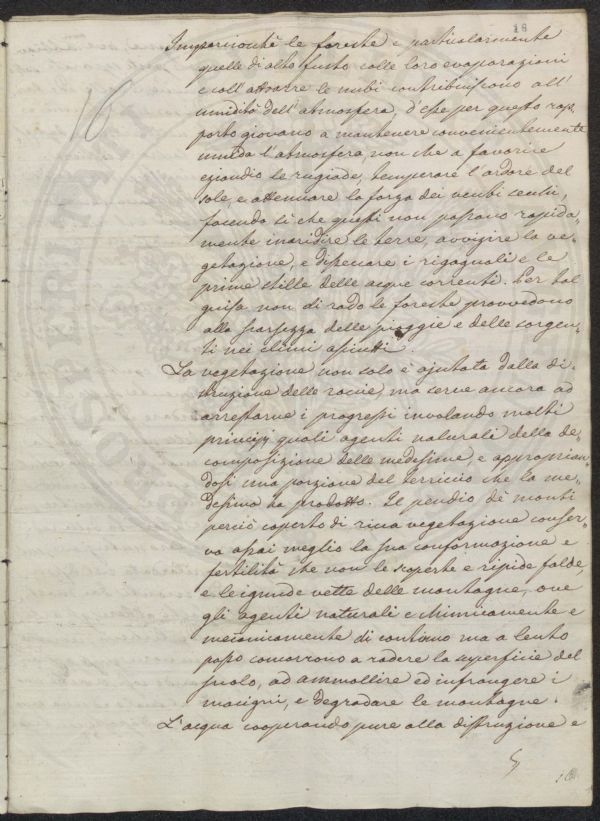 18
16
Imperciochè le foreste e particolarmente
quelle di alto fusto colle loro evaporazioni
e coll'attrarre le nubi contribuiscono all'
umidità dell'atmosfera, d'esse per questo rap-
porto giovano a mantenere convenientemente
umida l'atmosfera, non che a favorire
eziandio le rugiade, temperare l'ardore del
sole, e attenuare la forza dei venti
facendo sì che questi non passano rapida-
mente inaridire le terre, avvizire la ve-
getazione, e disseccare i rigagnoli e le
prime stille delle acque correnti. Per tal
guisa non di rado le foreste provvedono
alla scarsezza delle pioggie e delle sorgen-
ti nei climi asciutti.
La vegetazione non solo è ajutata dalla di-
struzione delle roccie, ma serve ancora ad
arrestarne i progressi involando molti
principj quali agenti naturali della de-
composizione delle medesime, e approprian-
dosi una porzione del terriccio che la me-
desima ha prodotto. Il pendio de' monti
perciò coperto di ricca vegetazione conser-
va assai meglio la sua conformazione e
fertilità che non le scoperte e ripide falde,
e le ignude vette delle montagne, ove
gli agenti naturali chimicamente e
meccanicamente di continuo ma a lento
passo concorrono a radere la superficie del
suolo, ad ammollire ed infrangere i
macigni, e degradare le montagne.
L'acqua cooperando pure alla distruzione e